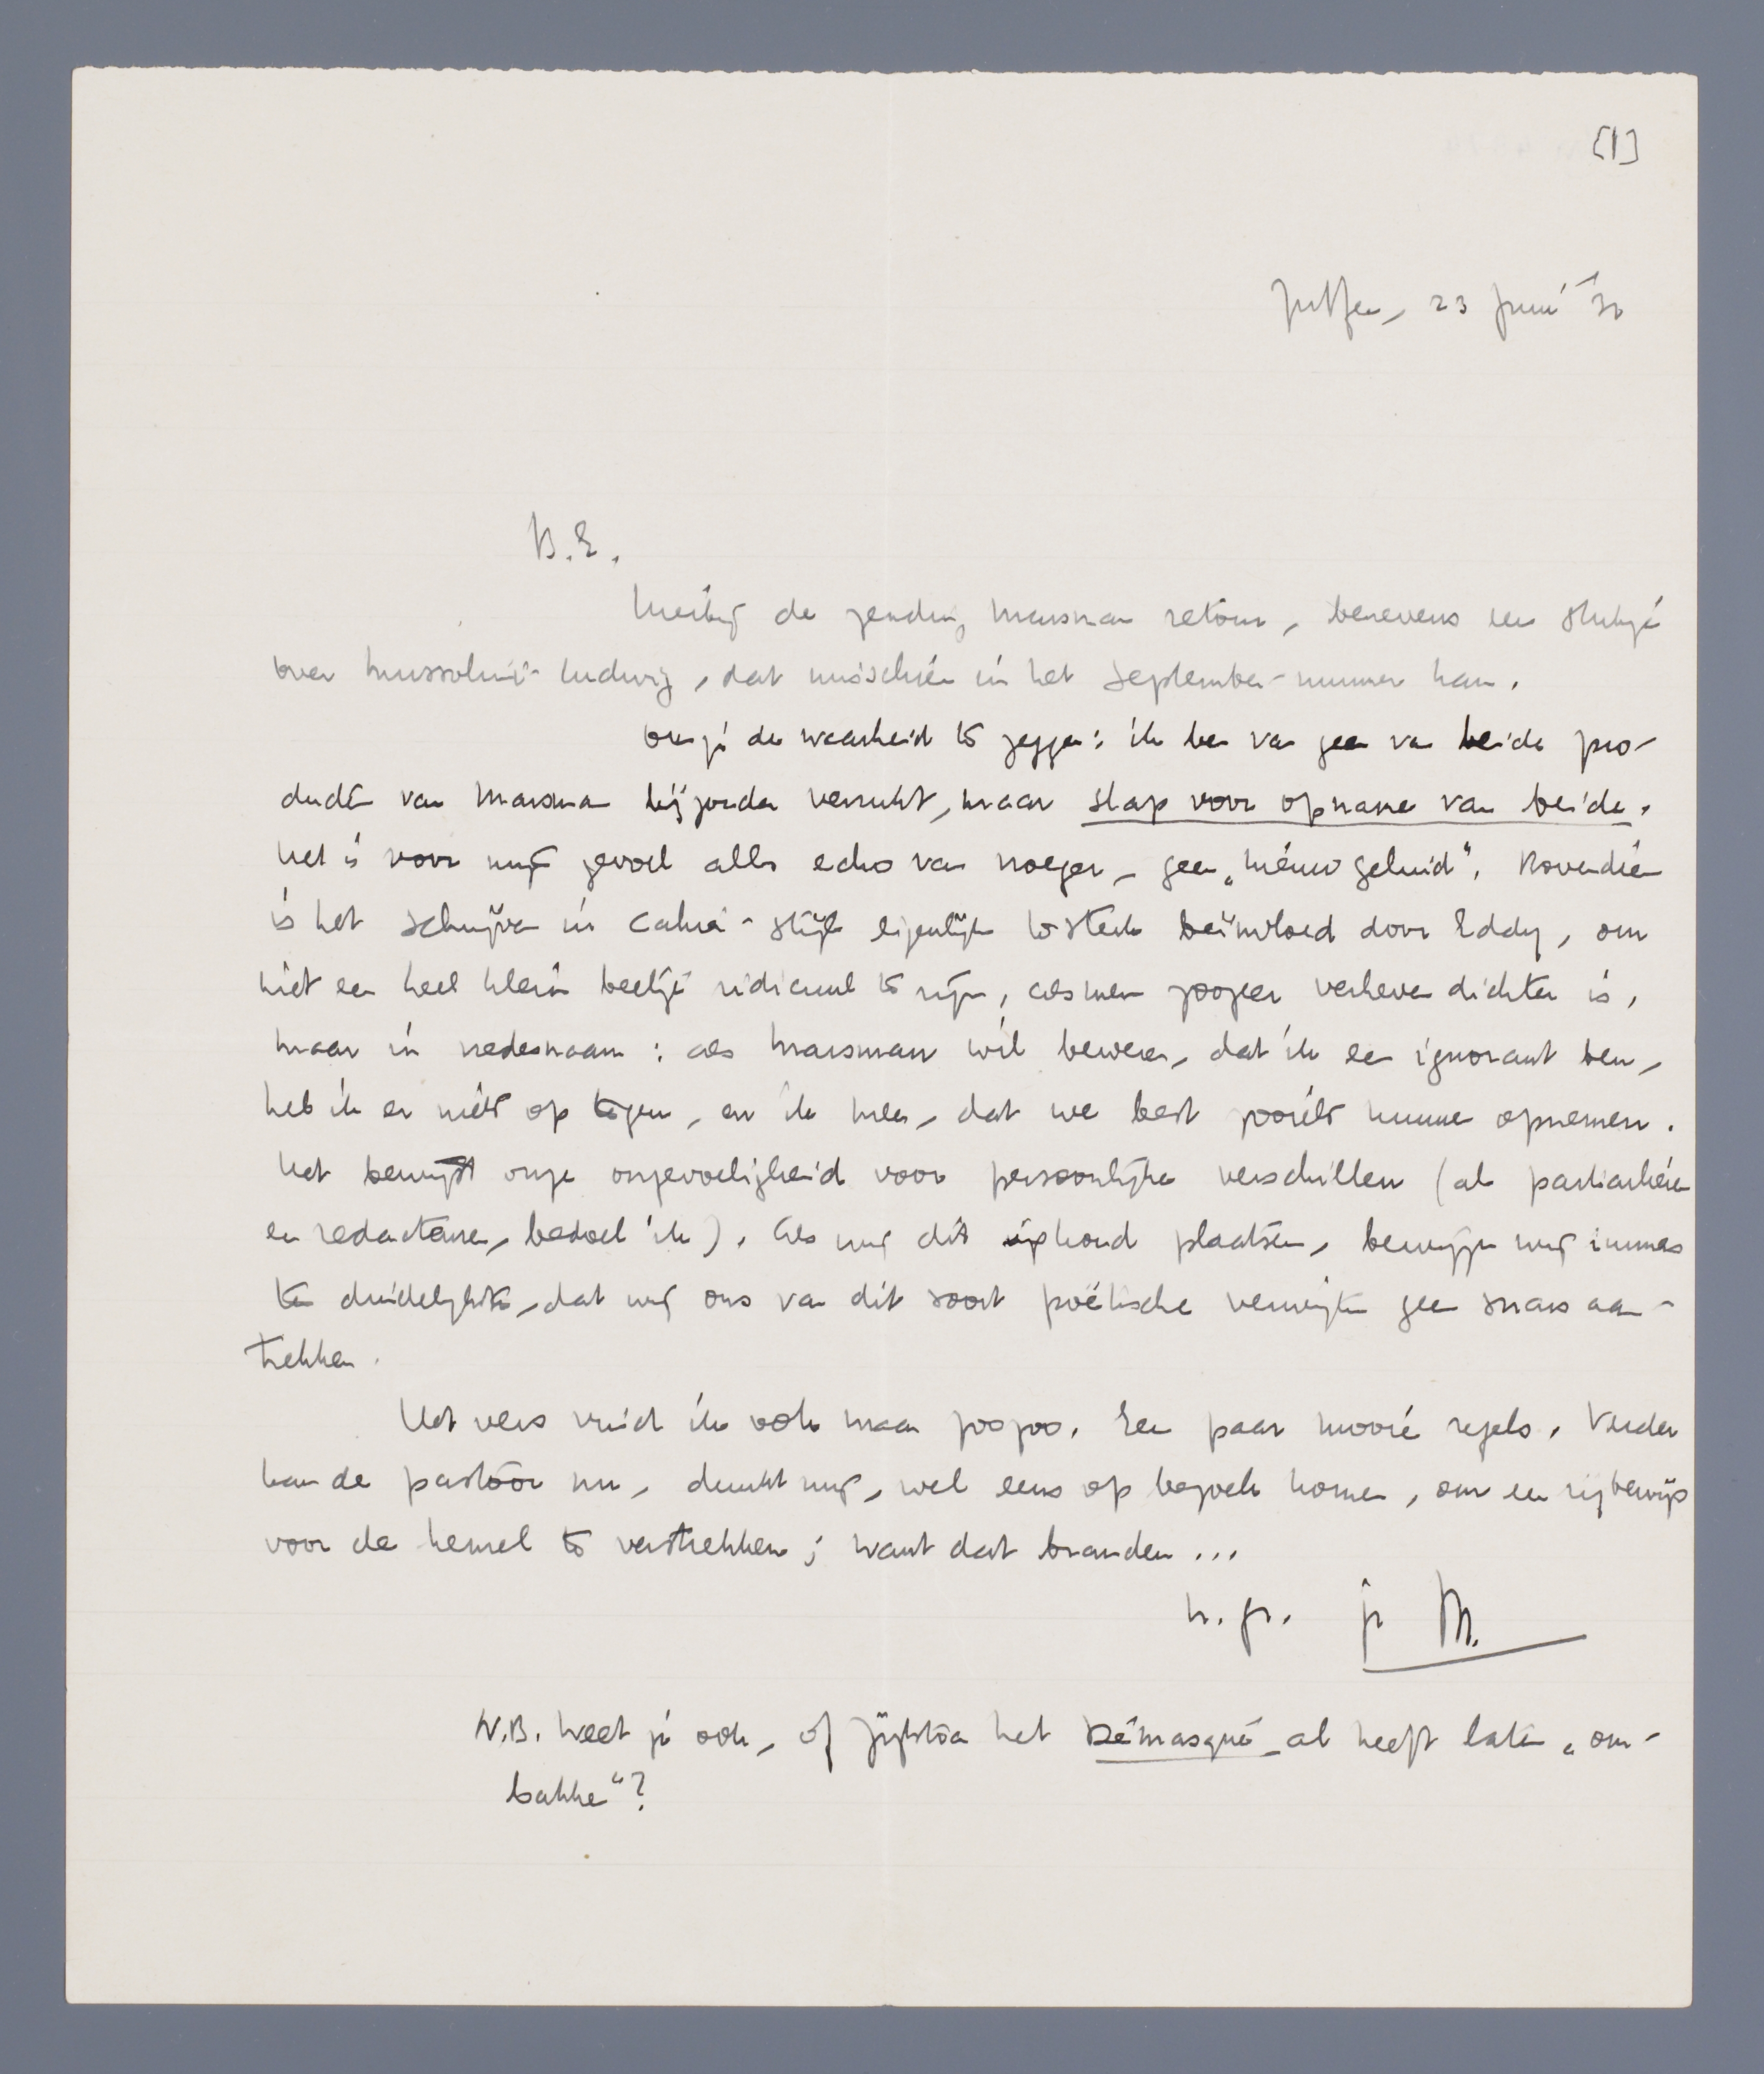 [1]
Zutfen, 23 Juni '32
B.E.
Hierbij de zending Marsman retour, benevens een stukje
over Mussolini-Ludwig, dat misschien in het September-nummer kan.
Om je de waarheid te zeggen: ik ben van geen van beide pro-
ducten van Marsman bijzonder verrukt, maar stap voor opname van beide.
Het is voor mijn gevoel alles echo van vroeger, geen „nieuw geluid". Bovendien
is het schrijven in cahier-stijl eigenlijk te sterk beïnvloed door Eddy, om
niet een heel klein beetje ridicuul te zijn, als men zoozeer verheven dichter is,
Maar in vredesnaam: als Marsman wil beweren, dat ik een ignorant ben,
heb ik er niets op tegen, en ik meen, dat we best zooiets kunnen opnemen.
Het bewijst onze ongevoeligheid voor persoonlijke verschillen (als particulieren
en redacteuren, bedoel ik). Als wij dit plaatsen, bewijzen wij immers
ten duidelijkste, dat wij ons van dit soort poëtische verwijten geen snars aan-
trekken.
Het vers vind ik ook maar zoozoo. Een paar mooie regels. Verder
kan de pastoor nu, dunkt mij, wel eens op bezoek komen, om een rijbewijs
voor de hemel te verstrekken; want dat branden ...
h. gr. je M.
N.B. Weet je ook, of Zijlstra het Démasqué al heeft laten „om-
bakken"?